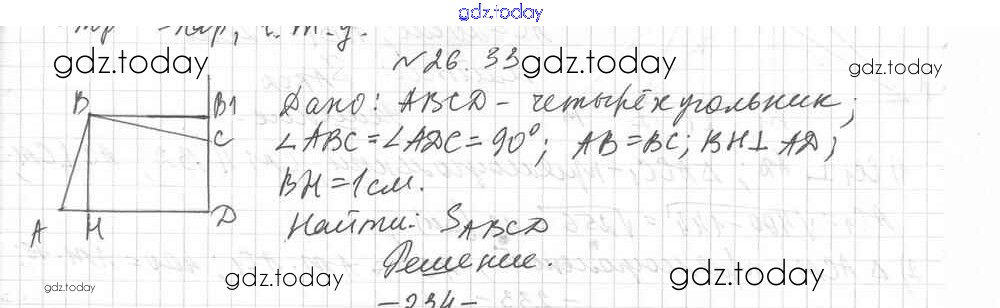 gdz.today
ч.т.д.
№26.33
gdz.today
gdz.today
gdz.today
B
B1
C
A
H
D
Дано: ABCD – четырёхугольник;
∠ABC = ∠ADC = 90°; AB = BC; BH ⊥ AD;
BH = 1 см.
Найти: S_ABCD
Решение.
gdz.today
gdz.today
gdz.today
–234–